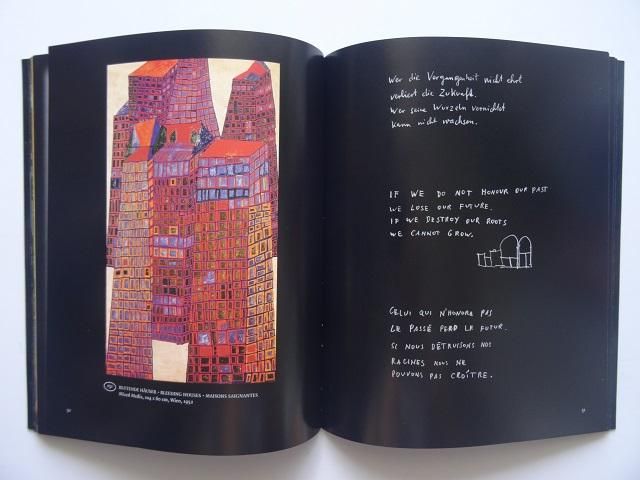 BLUTENDE HÄUSER - BLEEDING HOUSES - MAISONS SAIGNANTES
Mixed Media, 104 x 80 cm, Wien, 1952
Wer die Vergangenheit nicht ehrt
verliert die Zukunft.
Wer seine Wurzeln vernichtet
kann nicht wachsen.
IF WE DO NOT HONOUR OUR PAST
WE LOSE OUR FUTURE.
IF WE DESTROY OUR ROOTS
WE CANNOT GROW.
CELUI QUI N'HONORE PAS
LE PASSÉ PERD LE FUTUR.
SI NOUS DÉTRUISONS NOS
RACINES NOUS NE
POUVONS PAS CROÎTRE.